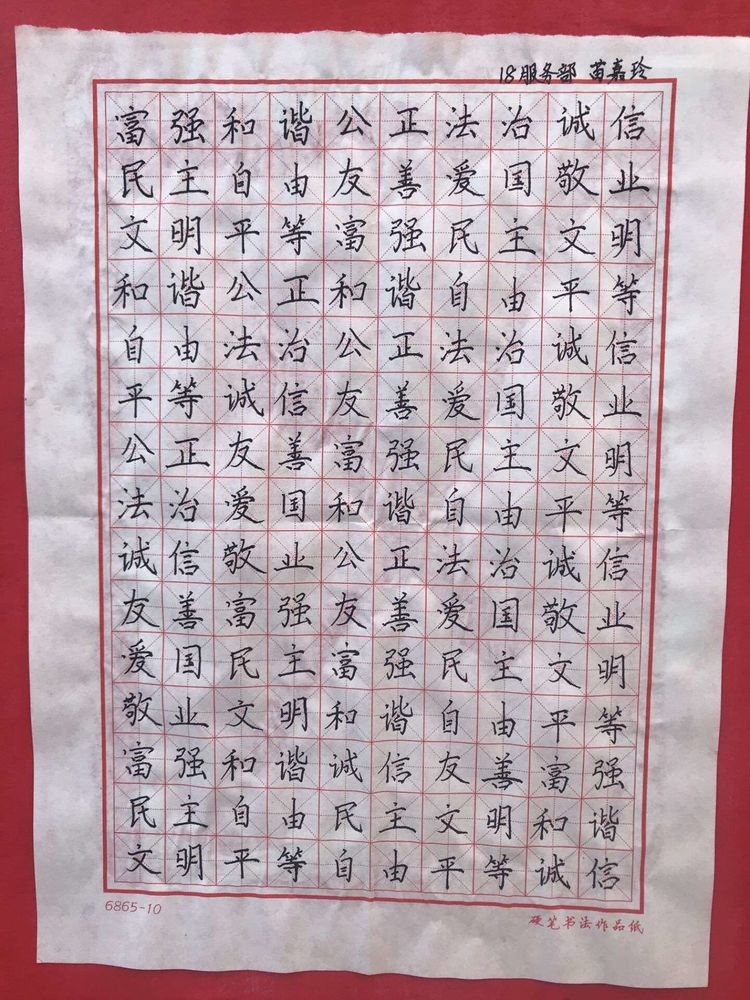 18服务部 苗嘉玲
富强和谐公正法治诚信
民主自由友善爱国敬业
文明平等富强民主文明
和谐公正和谐自由平等
自由法治公正法治诚信
平等诚信友善爱国敬业
公正友善富强民主文明
法治爱国和谐自由平等
诚信敬业公正法治诚信
友善富强友善爱国敬业
爱国民主富强民主文明
敬业文明和谐自由平等
富强和谐诚信友善富强
民主自由民主文明和谐
文明平等自由平等诚信
6865-10
硬笔书法作品纸